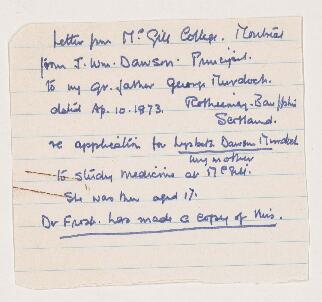 Letter from McGill College. Montreal
from J. Wm. Dawson. Principal.
to my gr. father George Murdoch.
dated Ap. 10. 1873. Rothiemay - Banffshire
Scotland.
re application for Lysbeth Dawson Murdoch
my mother
to study medicine at McGill.
She was then aged 17.
Dr Frost. has made a copy of this.